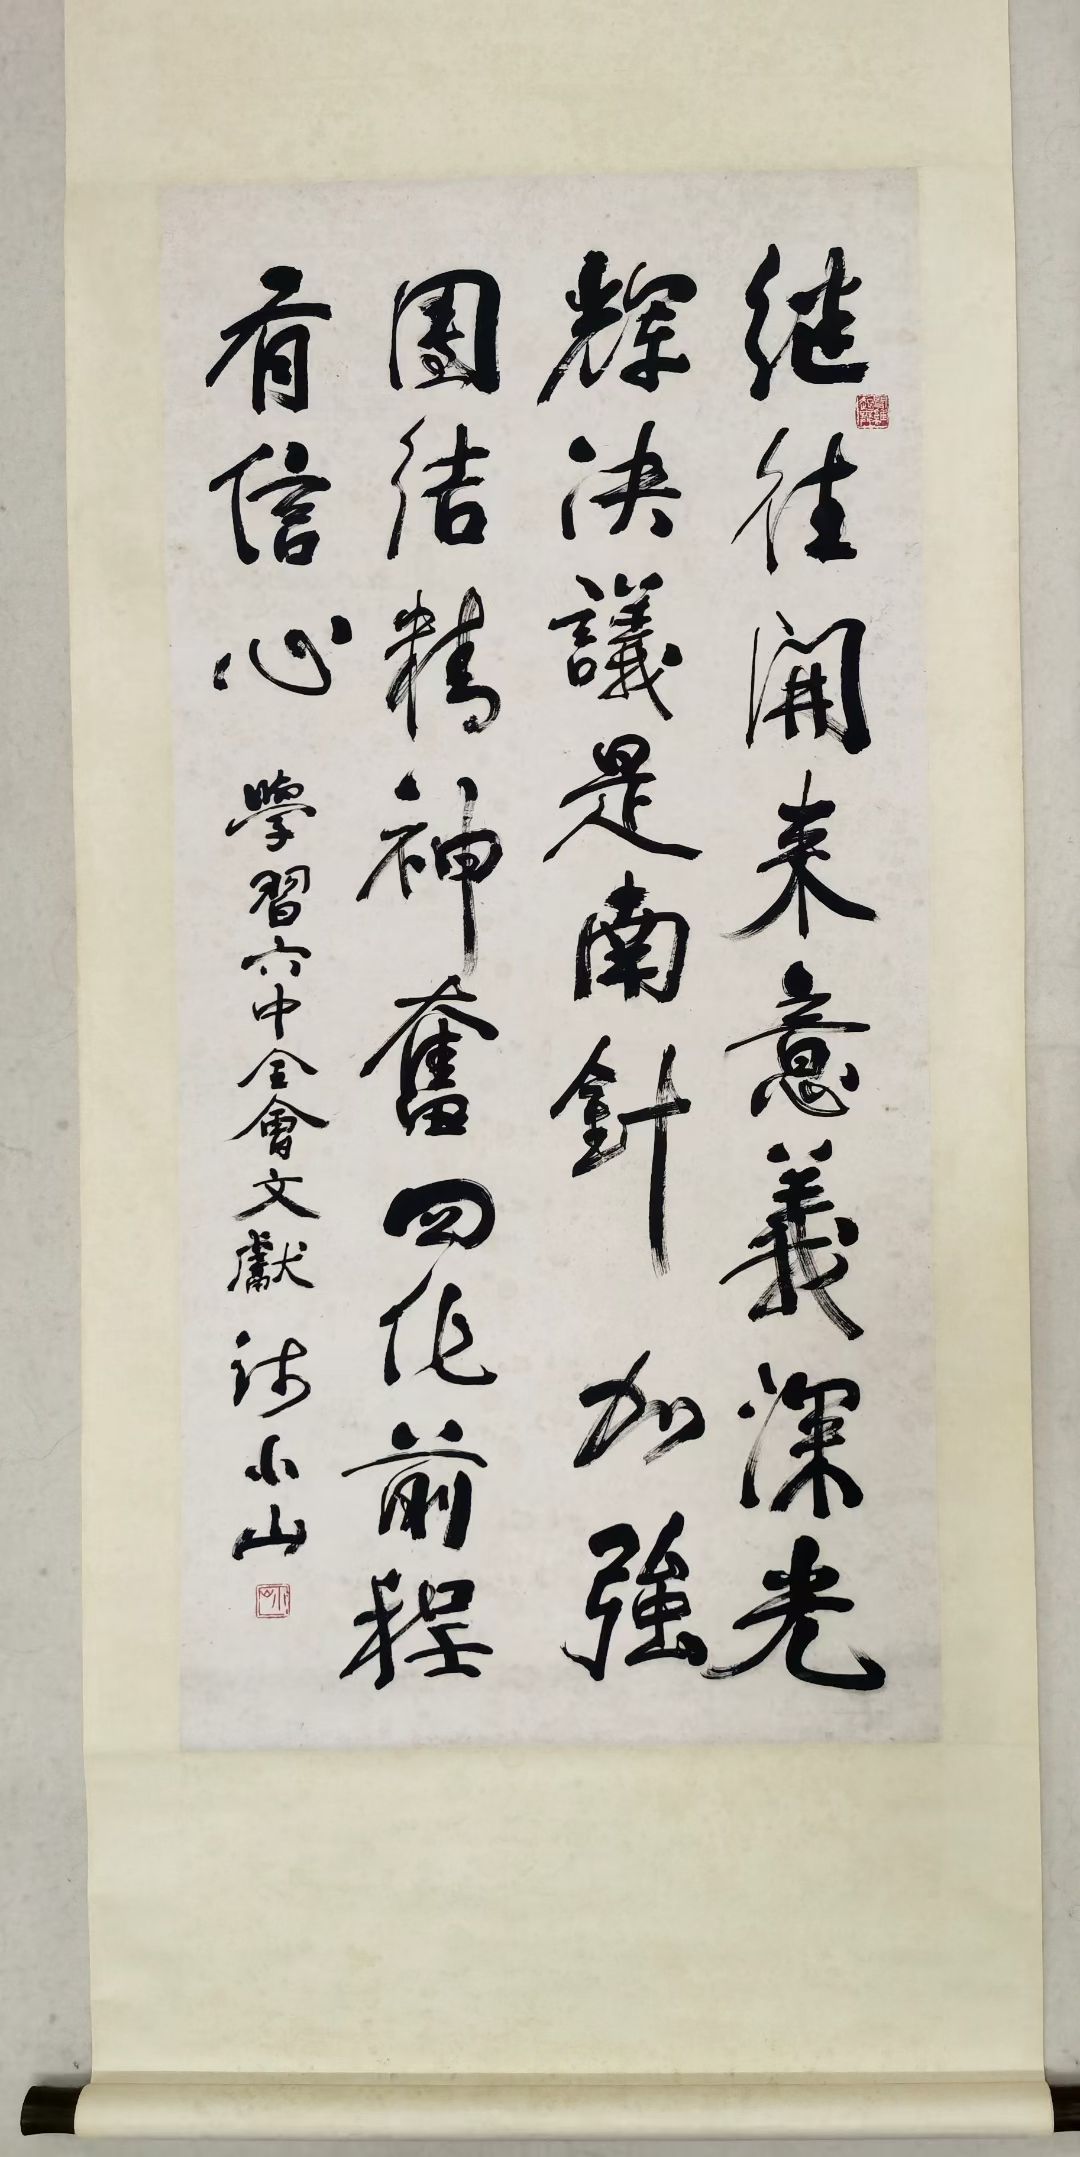 继往开来意義深光
辉决議是南針加強
團结精神奮四化前程
有信心
學習六中全會文獻
小山